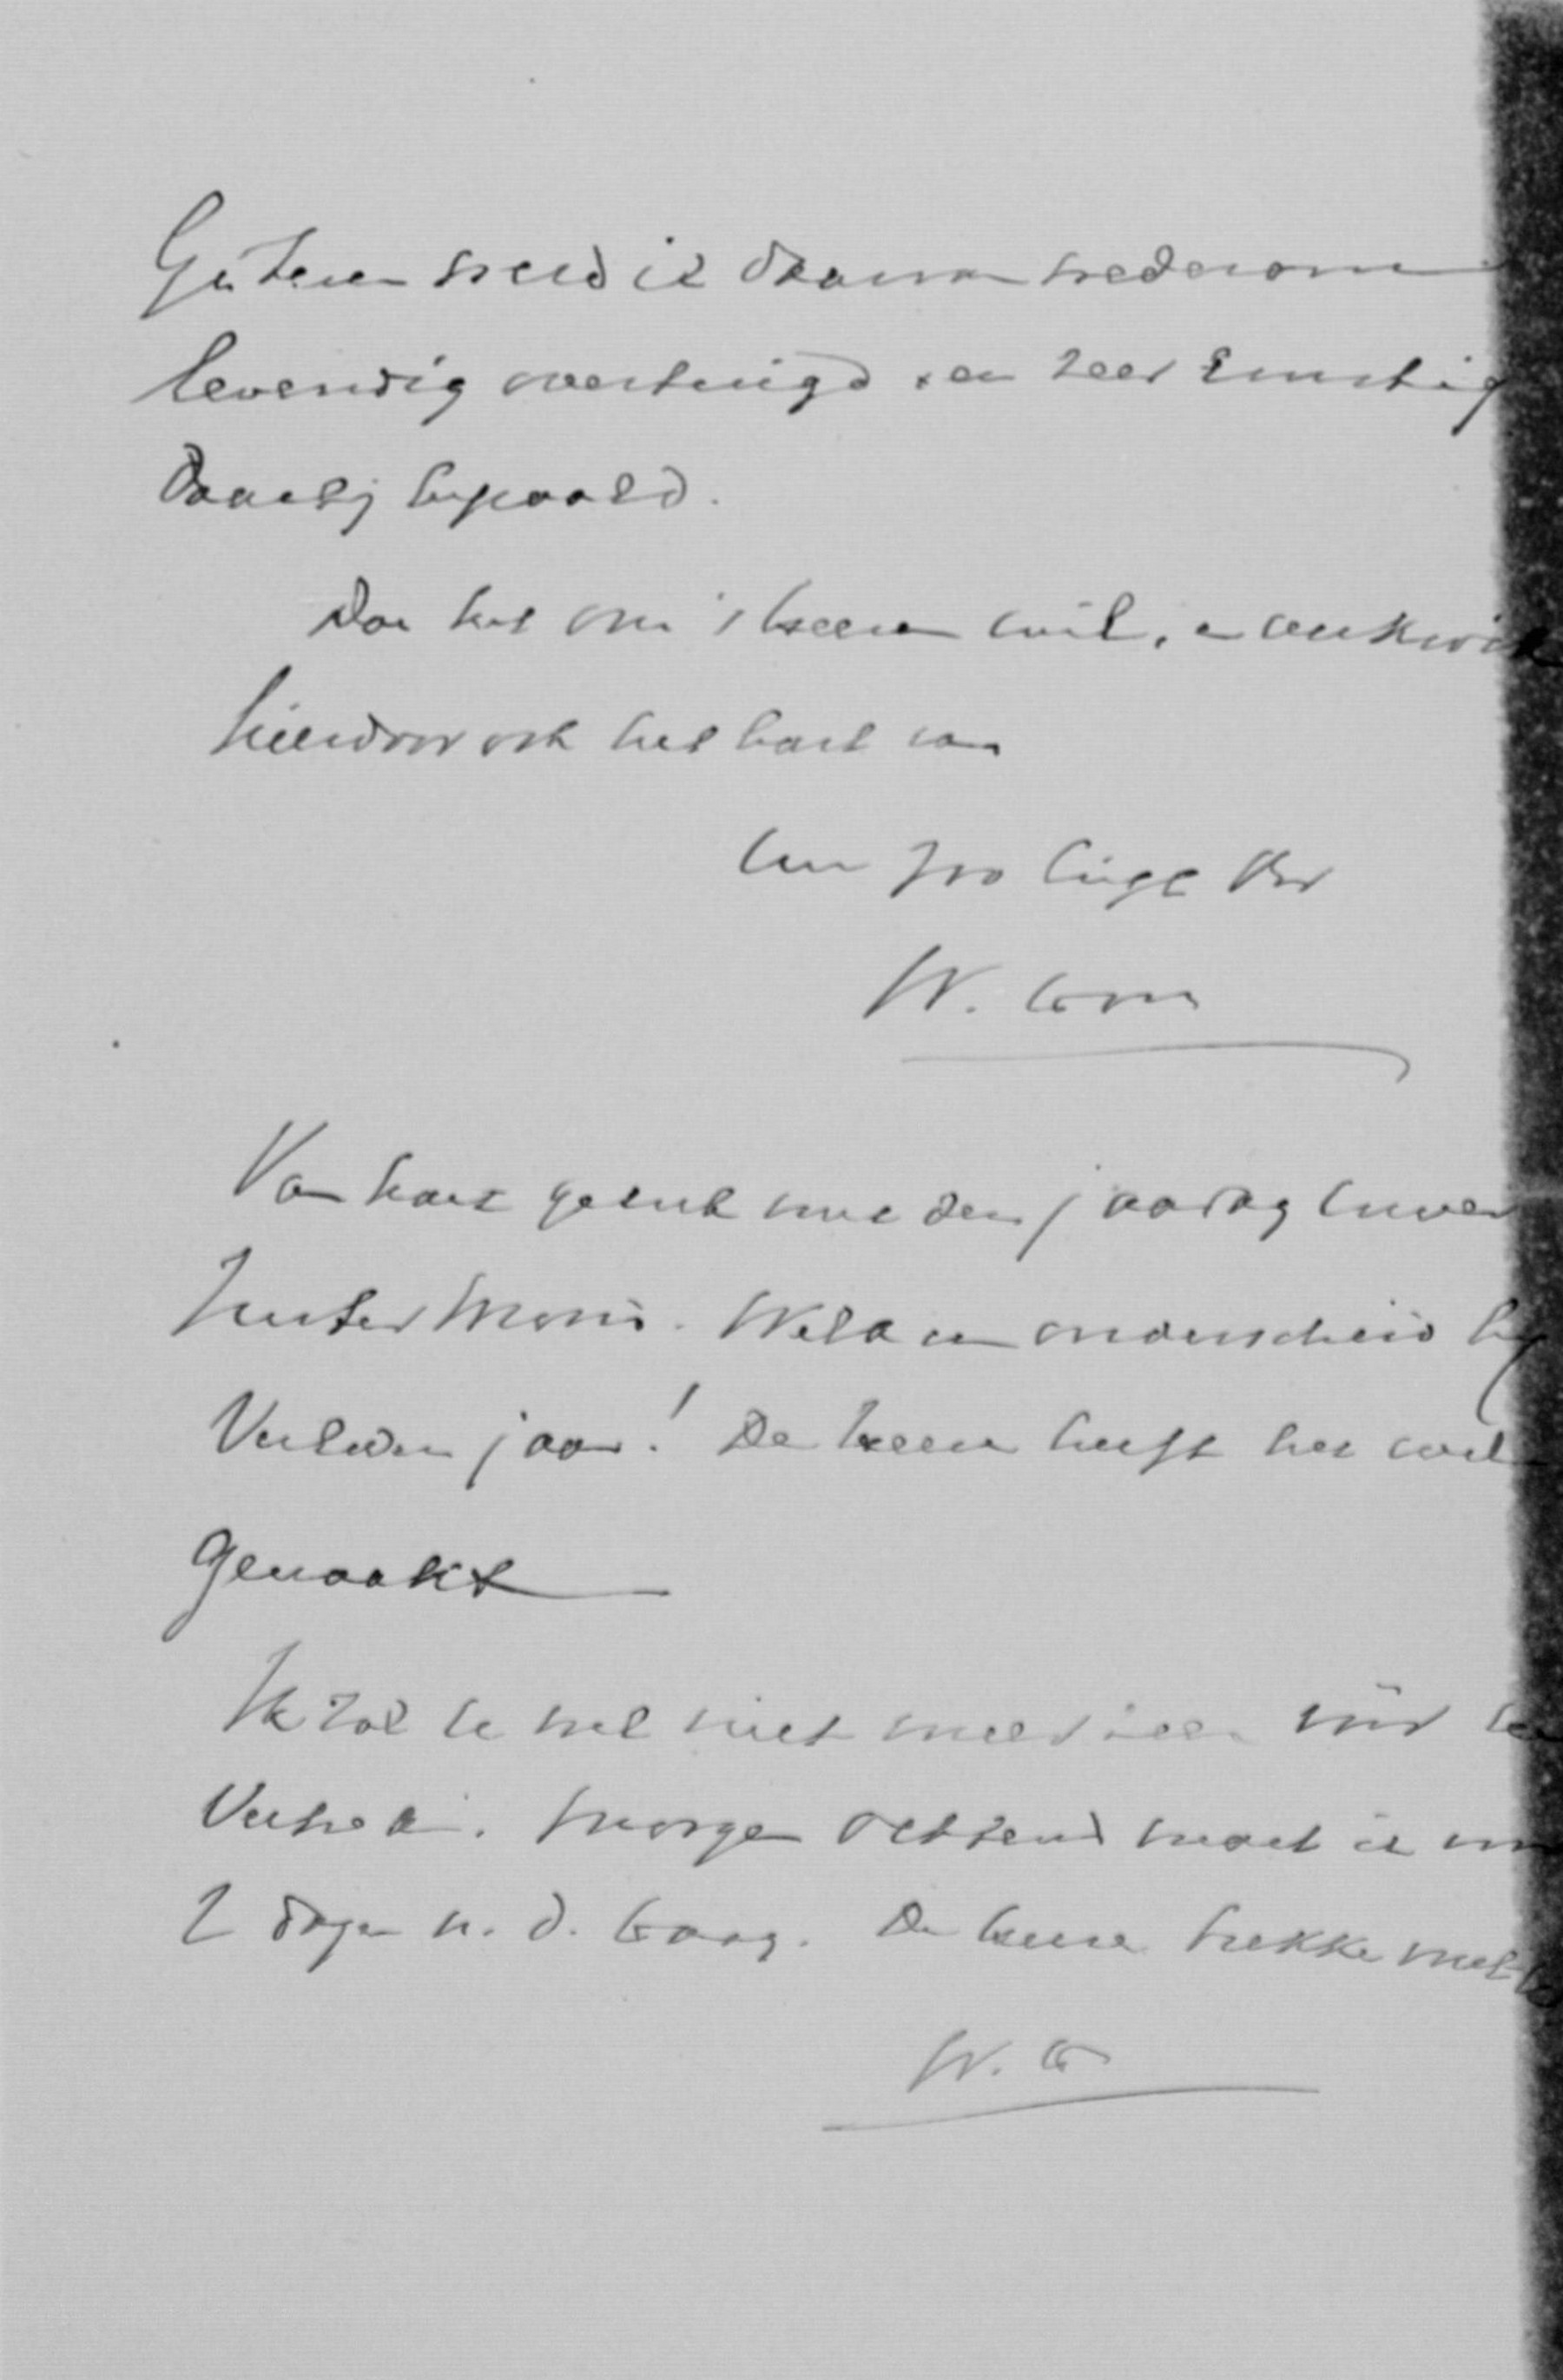 Gisteren werd ik daarvan wederom
levendig overtuigd, en zeer ernstig
daarbij bepaald.
Doe het om 's Heeren wil, en verkwik
hierdoor ook het hart van
Uw zoo
W.
Van hart geluk met den jaardag uwer
Zuster Marie. Welk een onderscheid bij
Verleden jaar! De Heere heeft het wel
Gemaakt
Ik zal U wel niet meer zien vóór Uw
Vertrek. Morgen ochtend moet ik voor
2 dagen n. d. Haag. De Heere trekke met U
W.